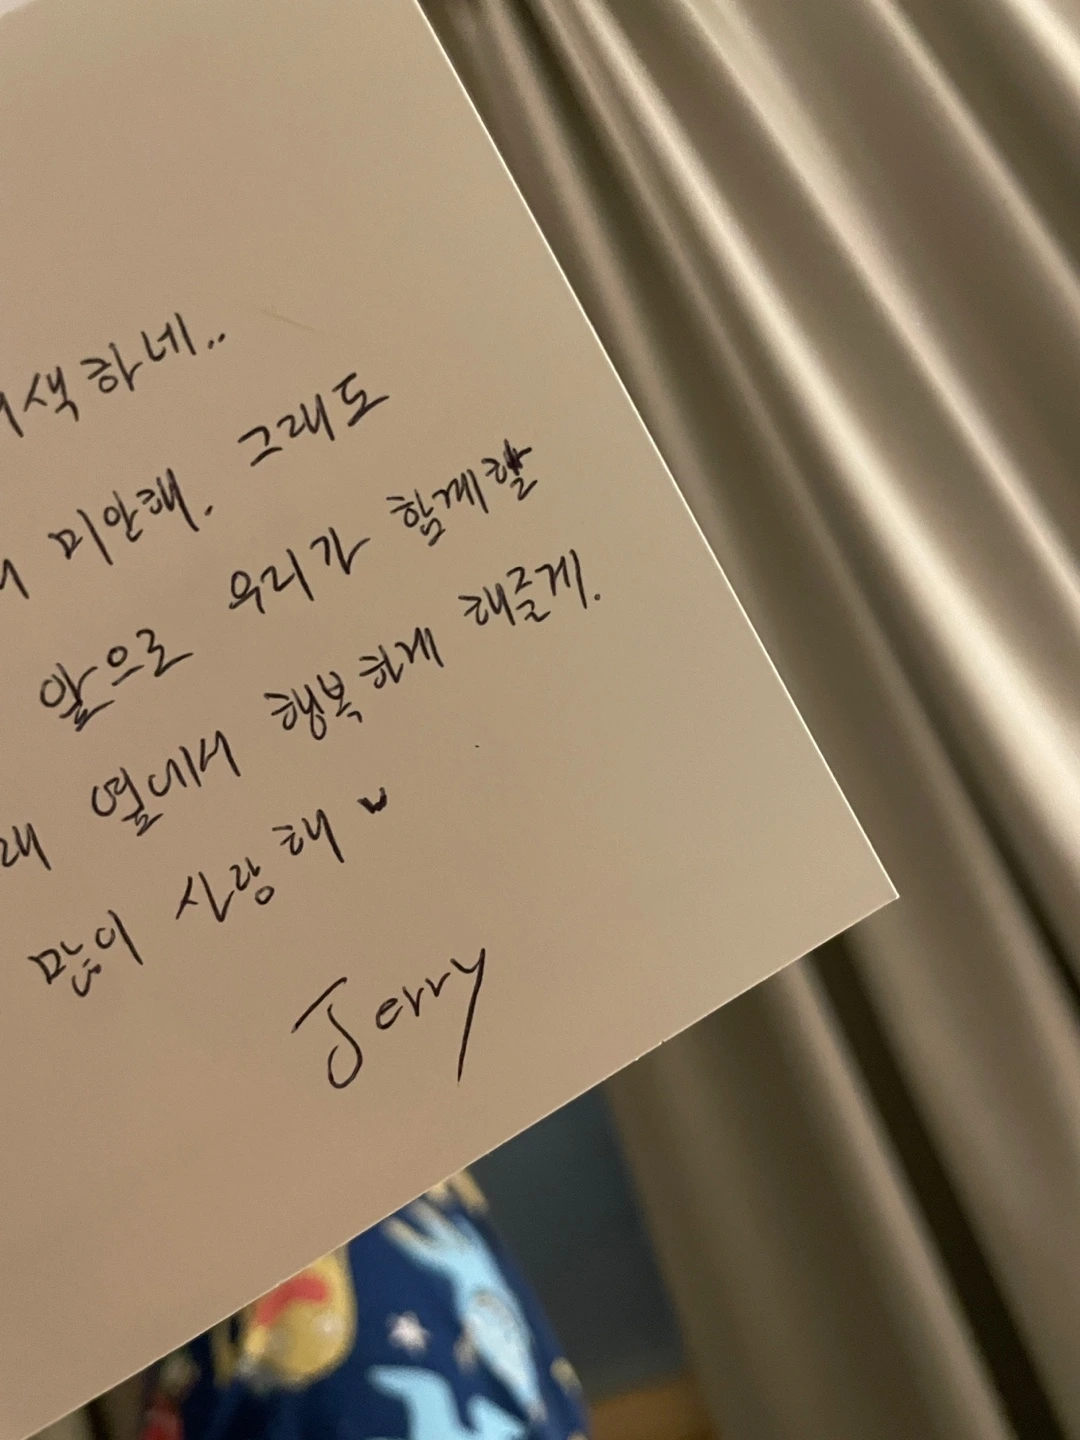 색하네..
미안해. 그래도
앞으로 우리가 함께할
옆에서 행복하게 해줄게.
많이 사랑해
Jerry